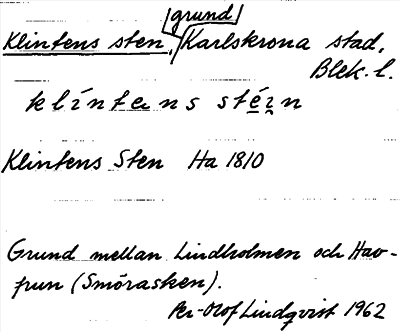 grund
Klintens sten, Karlskrona stad,
Blek. l.
klíntens stéi̯n
Klintens Sten Ha 1810
Grund mellan Lindholmen och Hav-
frun (Smörasken).
Per-Olof Lindqvist 1962